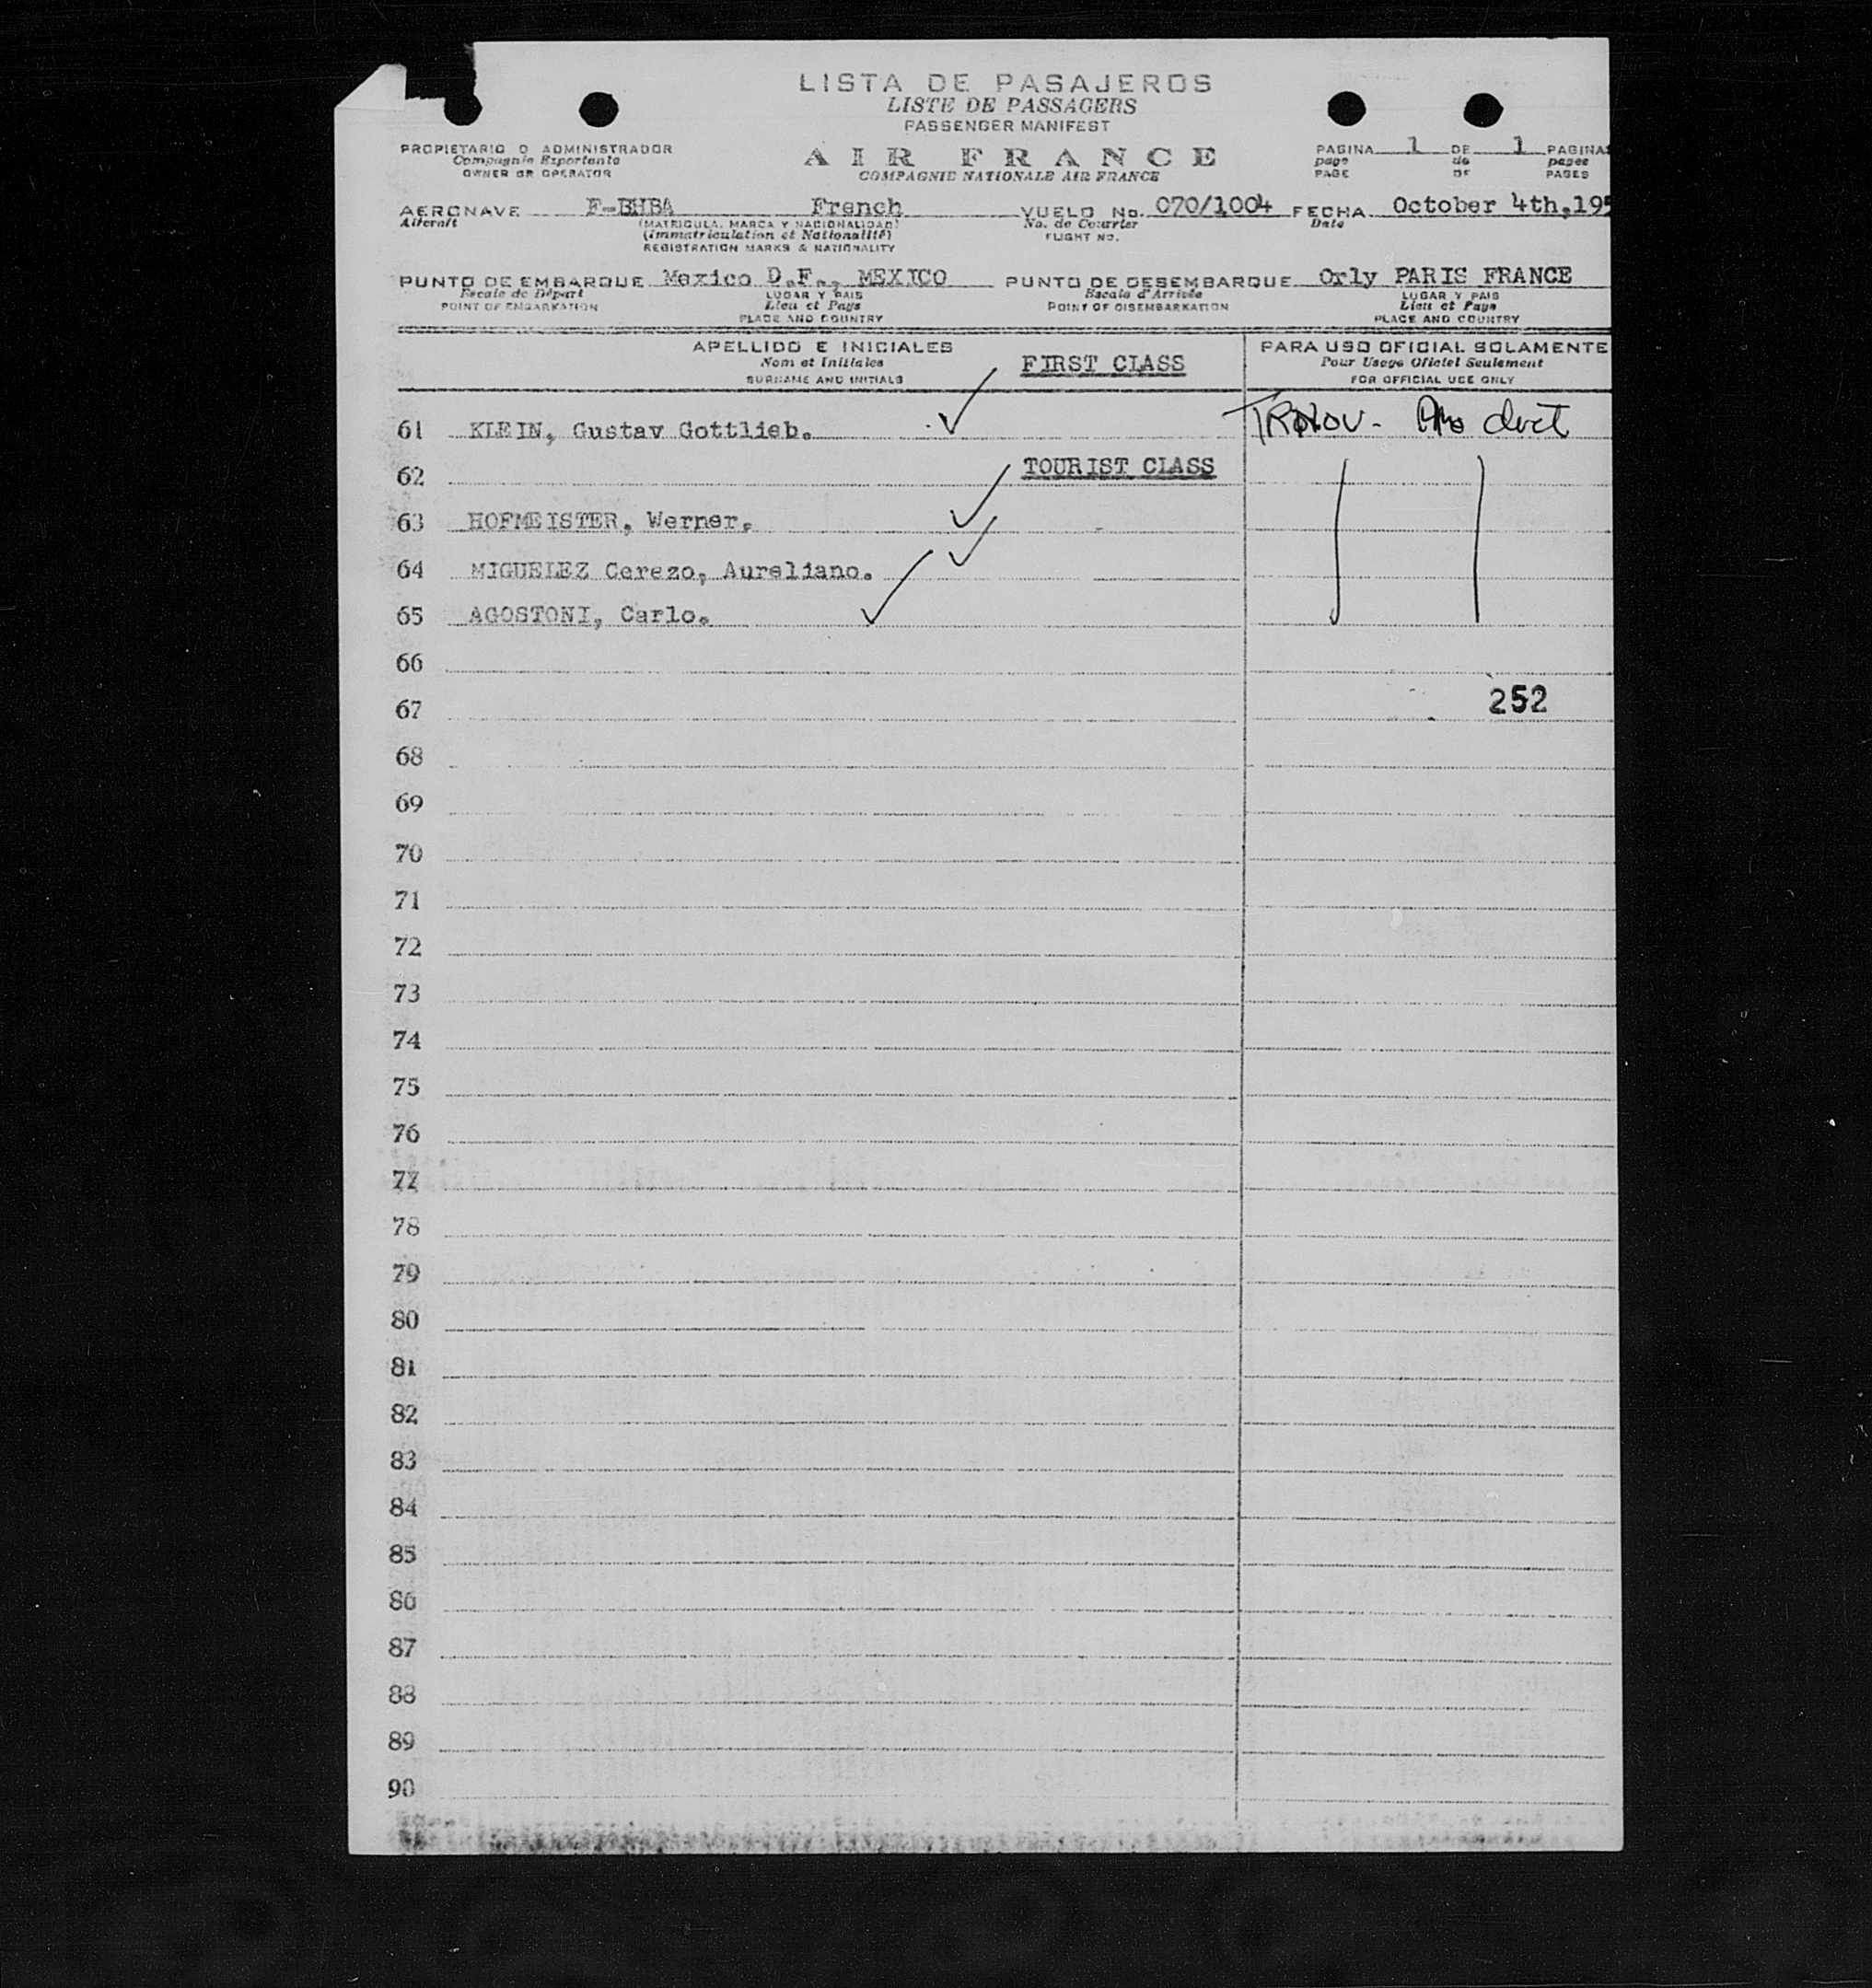 LISTA DE PASAJEROS
LISTE DE PASSAGERS
PASSENGER MANIFEST
PROPIETARIO O ADMINISTRADOR
Compagnie Exportante
OWNER OR OPERATOR
AIR FRANCE
COMPAGNIE NATIONALE AIR FRANCE
PAGINA 1 DE 1 PAGINAS
page de pages
PAGE OF PAGES
AERONAVE F-BHBA French VUELO No. 070/1004 FECHA October 4th,195
Aircraft (MATRICULA, MARCA Y NACIONALIDAD) No. de Courrier Date
(immatriculation et Nationalité) FLIGHT NO.
REGISTRATION MARKS & NATIONALITY
PUNTO DE EMBARQUE Mexico D.F., MEXICO PUNTO DE DESEMBARQUE Orly PARIS FRANCE
Escale de Départ LUGAR Y PAIS Escale d'Arrivée LUGAR Y PAIS
POINT OF EMBARKATION Lieu et Pays POINT OF DISEMBARKATION Lieu et Pays
PLACE AND COUNTRY PLACE AND COUNTRY
APELLIDO E INICIALES
Nom et Initiales
SURNAME AND INITIALS
FIRST CLASS
PARA USO OFICIAL SOLAMENTE
Pour Usage Officiel Seulement
FOR OFFICIAL USE ONLY
61 KLEIN, Gustav Gottlieb.
62 TOURIST CLASS
63 HOFMEISTER, Werner.
64 MIGUELEZ Cerezo, Aureliano.
65 AGOSTONI, Carlo.
66
67 252
68
69
70
71
72
73
74
75
76
77
78
79
80
81
82
83
84
85
86
87
88
89
90